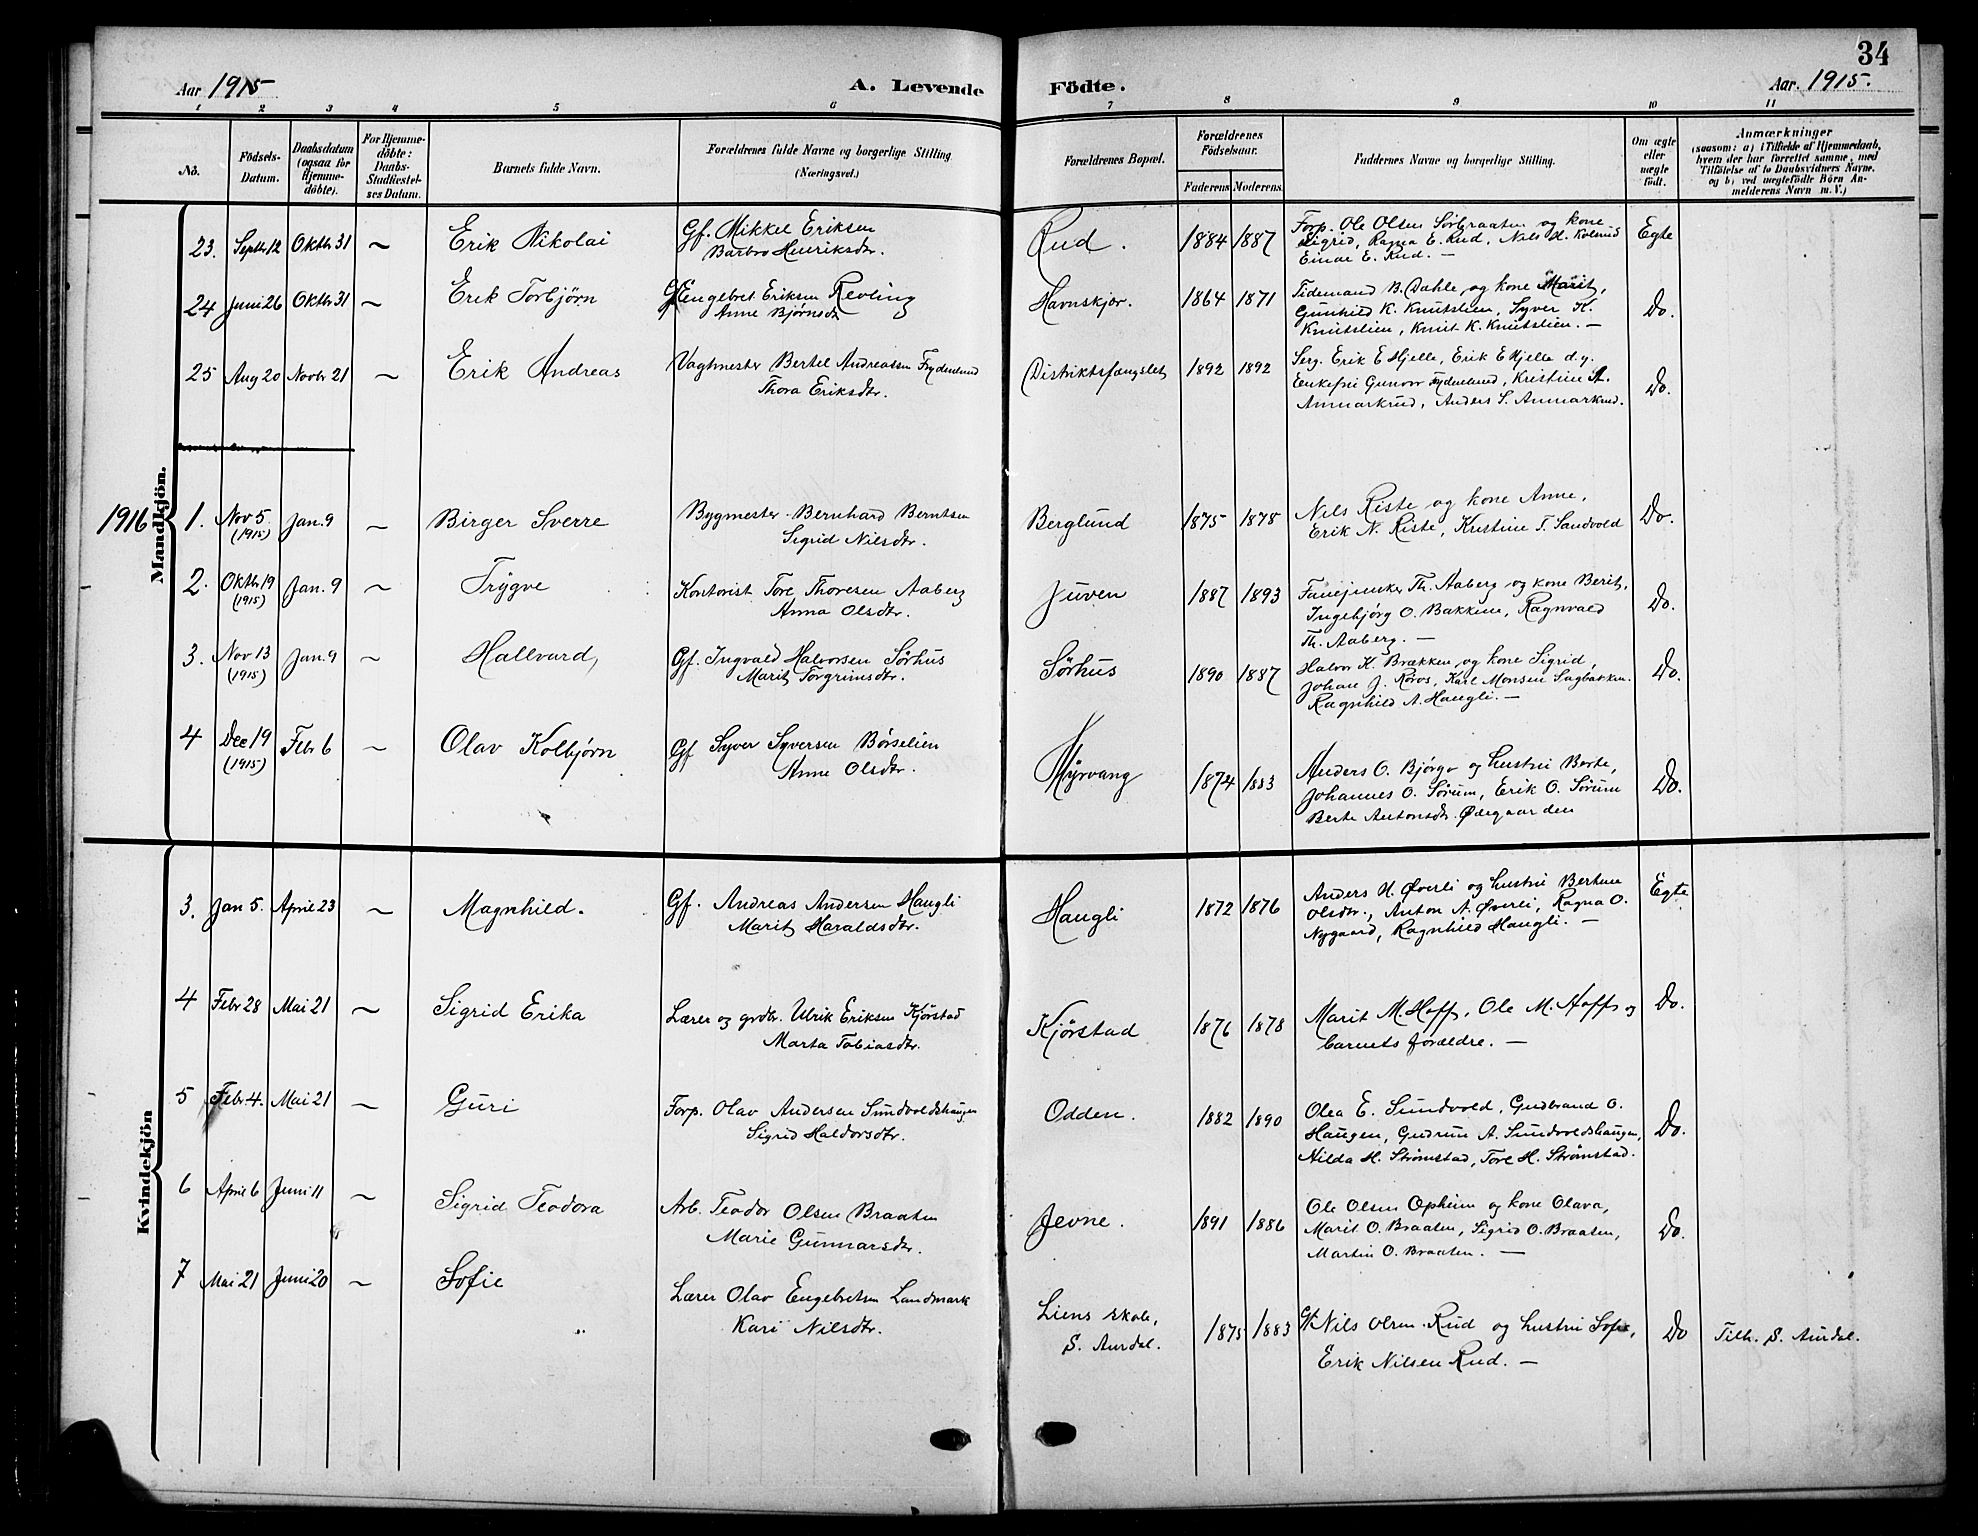 34
Aar 1915
A. Levende
Födte.
Aar 1915.
1 2 3 4 5 6 7 8 9 10 11
No.
Födsels-
Datum.
Daabsdatum
(ogsaa for
Hjemme-
döbte).
For Hjemme-
döbte:
Daabs-
Stadfæstel-
ses Datum.
Barnets fulde Navn.
Forældrenes fulde Navne og borgerlige Stilling
(Næringsvei.)
Forældrenes Bopæl.
Forældrenes
Födselsaar.
Faderens Moderens
Faddernes Navne og borgerlige Stilling.
Om ægte
eller
uægte
født.
Anmærkninger
(saasom: a) i Tilfælde af Hjemmedaab,
hvem der har forrettet samme, med
Tilföielse af to Daabsvidners Navne.
og b) ved uægtefödte Börn An-
melderens Navn m. V.)
Mandkjön.
23. Septbr 12 Oktbr 31 ~ Erik Nikolai Gf. Mikkel Eriksen
Barbro Henriksdtr.
Rud. 1884 1887 Forp. Ole Olsen Sørbraaten og kone
Sigrid, Ragna E. Rud, Nils H. Kolsrud
Einar E. Rud. —
Egte
24 Juni 26 Oktbr 31 ~ Erik Torbjørn Gf Engebret Eriksen Revling
Anne Bjørnsdtr
Havnskjør. 1864 1871 Tidemand B. Dahle og kone Marit,
Gunhild K. Knutslien, Syver K.
Knutslien, Knut K. Knutslien. —
Do.
25 Aug 20 Novbr 21 ~ Erik Andreas Vagtmester Bertel Andreassen Frydenlund
Thora Eriksdtr.
Distriktsfængslet 1892 1892 Serg. Erik E Hjelle, Erik E Hjelle d.y.
Enkefru Gunvor Frydenlund, Kristine A.
Anmarkrud, Anders S. Anmarkrud.
Do.
1916
1. Nov 5. (1915) Jan. 9 ~ Birger Sverre Bygmester Bernhard Berntsen
Sigrid Nilsdtr.
Berglund 1875 1878 Nils Riste og kone Anne,
Erik N. Riste, Kristine T. Sandvold
Do.
2. Oktbr 19 (1915) Jan. 9 ~ Trygve Kontorist Tore Thoresen Aaberg
Anna Olsdtr.
Juven 1887 1893 Fanejunker Th. Aaberg og kone Berit,
Ingebjørg O. Bakkene, Ragnvald
Th. Aaberg. —
Do.
3. Nov 13 (1915) Jan. 9 ~ Hallvard Gf. Ingvald Halvorsen Sørhus
Marit Torgrimsdtr.
Sørhus 1890 1887 Halvor K. Brækken og kone Sigrid,
Johan J. Røros, Karl Monsen Sagbakken.
Ragnhild A. Haugli. —
Do.
4 Dec 19 (1915) Febr 6 ~ Olav Kolbjørn Gf Syver Syversen Børselien
Anne Olsdtr.
Myrvang 1874 1883 Anders O. Bjørgo og hustru Berte,
Johannes O. Sørum, Erik O. Sørum
Berte Antonsdtr. Ødegaarden
Do.
Kvindekjön
3. Jan 5. April 23 ~ Magnhild. Gf. Andreas Andersen Haugli
Marit Haraldsdtr.
Haugli 1872 1876 Anders H. Øverli og hustru Berthe
Olsdtr., Anton A. Øverli, Ragna O.
Nygaard, Ragnhild Haugli. —
Egte
4 Febr 28 Mai 21 ~ Sigrid Erika Lærer og grdbr. Ulrik Eriksen Kjørstad
Marta Tobiasdtr.
Kjørstad 1876 1878 Marit M. Hoff, Ole M. Hoff og
barnets forældre. —
Do.
5 Febr. 4. Mai 21 ~ Guri Forp. Olav Andersen Sundvoldshaugen
Sigrid Haldorsdtr.
Odden. 1882 1890 Olea E. Sundvold, Gudbrand O.
Haugen, Gudrun A. Sundvoldshaugen,
Nilda H. Strømstad, Tore H. Strømstad.
Do.
6 April 6 Juni 11 ~ Sigrid Teodora Arb. Teodor Olsen Braaten
Marie Gunnarsdtr.
Jevne. 1891 1886 Ole Olsen Opheim og kone Olava,
Marit O. Braaten, Sigrid O. Braaten,
Martin O. Braaten. —
Do.
7 Mai 21 Juni 20 ~ Sofie Lærer Olav Engebretsen Landmark
Kari Nilsdtr.
Liens skole,
S. Aurdal.
1875 1883 Gf. Nils Olsen Rud og hustru Sofie,
Erik Nilsen Rud. —
Do Tilh. S. Aurdal.